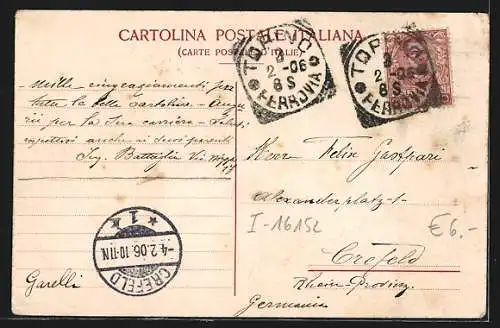 CARTOLINA POSTALE ITALIANA
(CARTE POSTALE D'ITALIE)
TORINO
2 -06
8 S
FERROVIA
TORINO
2 -06
8 S
FERROVIA
Mille ringraziamenti per
tutta la bella cartolina - Augu
rii per la Sua carriera - Saluti
rispettosi anche ai Suoi parenti
Sig. Battaglia Via
Garelli
CREFELD
* 1 *
-4.2.06.10-11N.
Herr Felix Gastpari
Alexanderplatz-1-
I-16152
€6.-
Crefeld
Rhein-Provinz
Germania